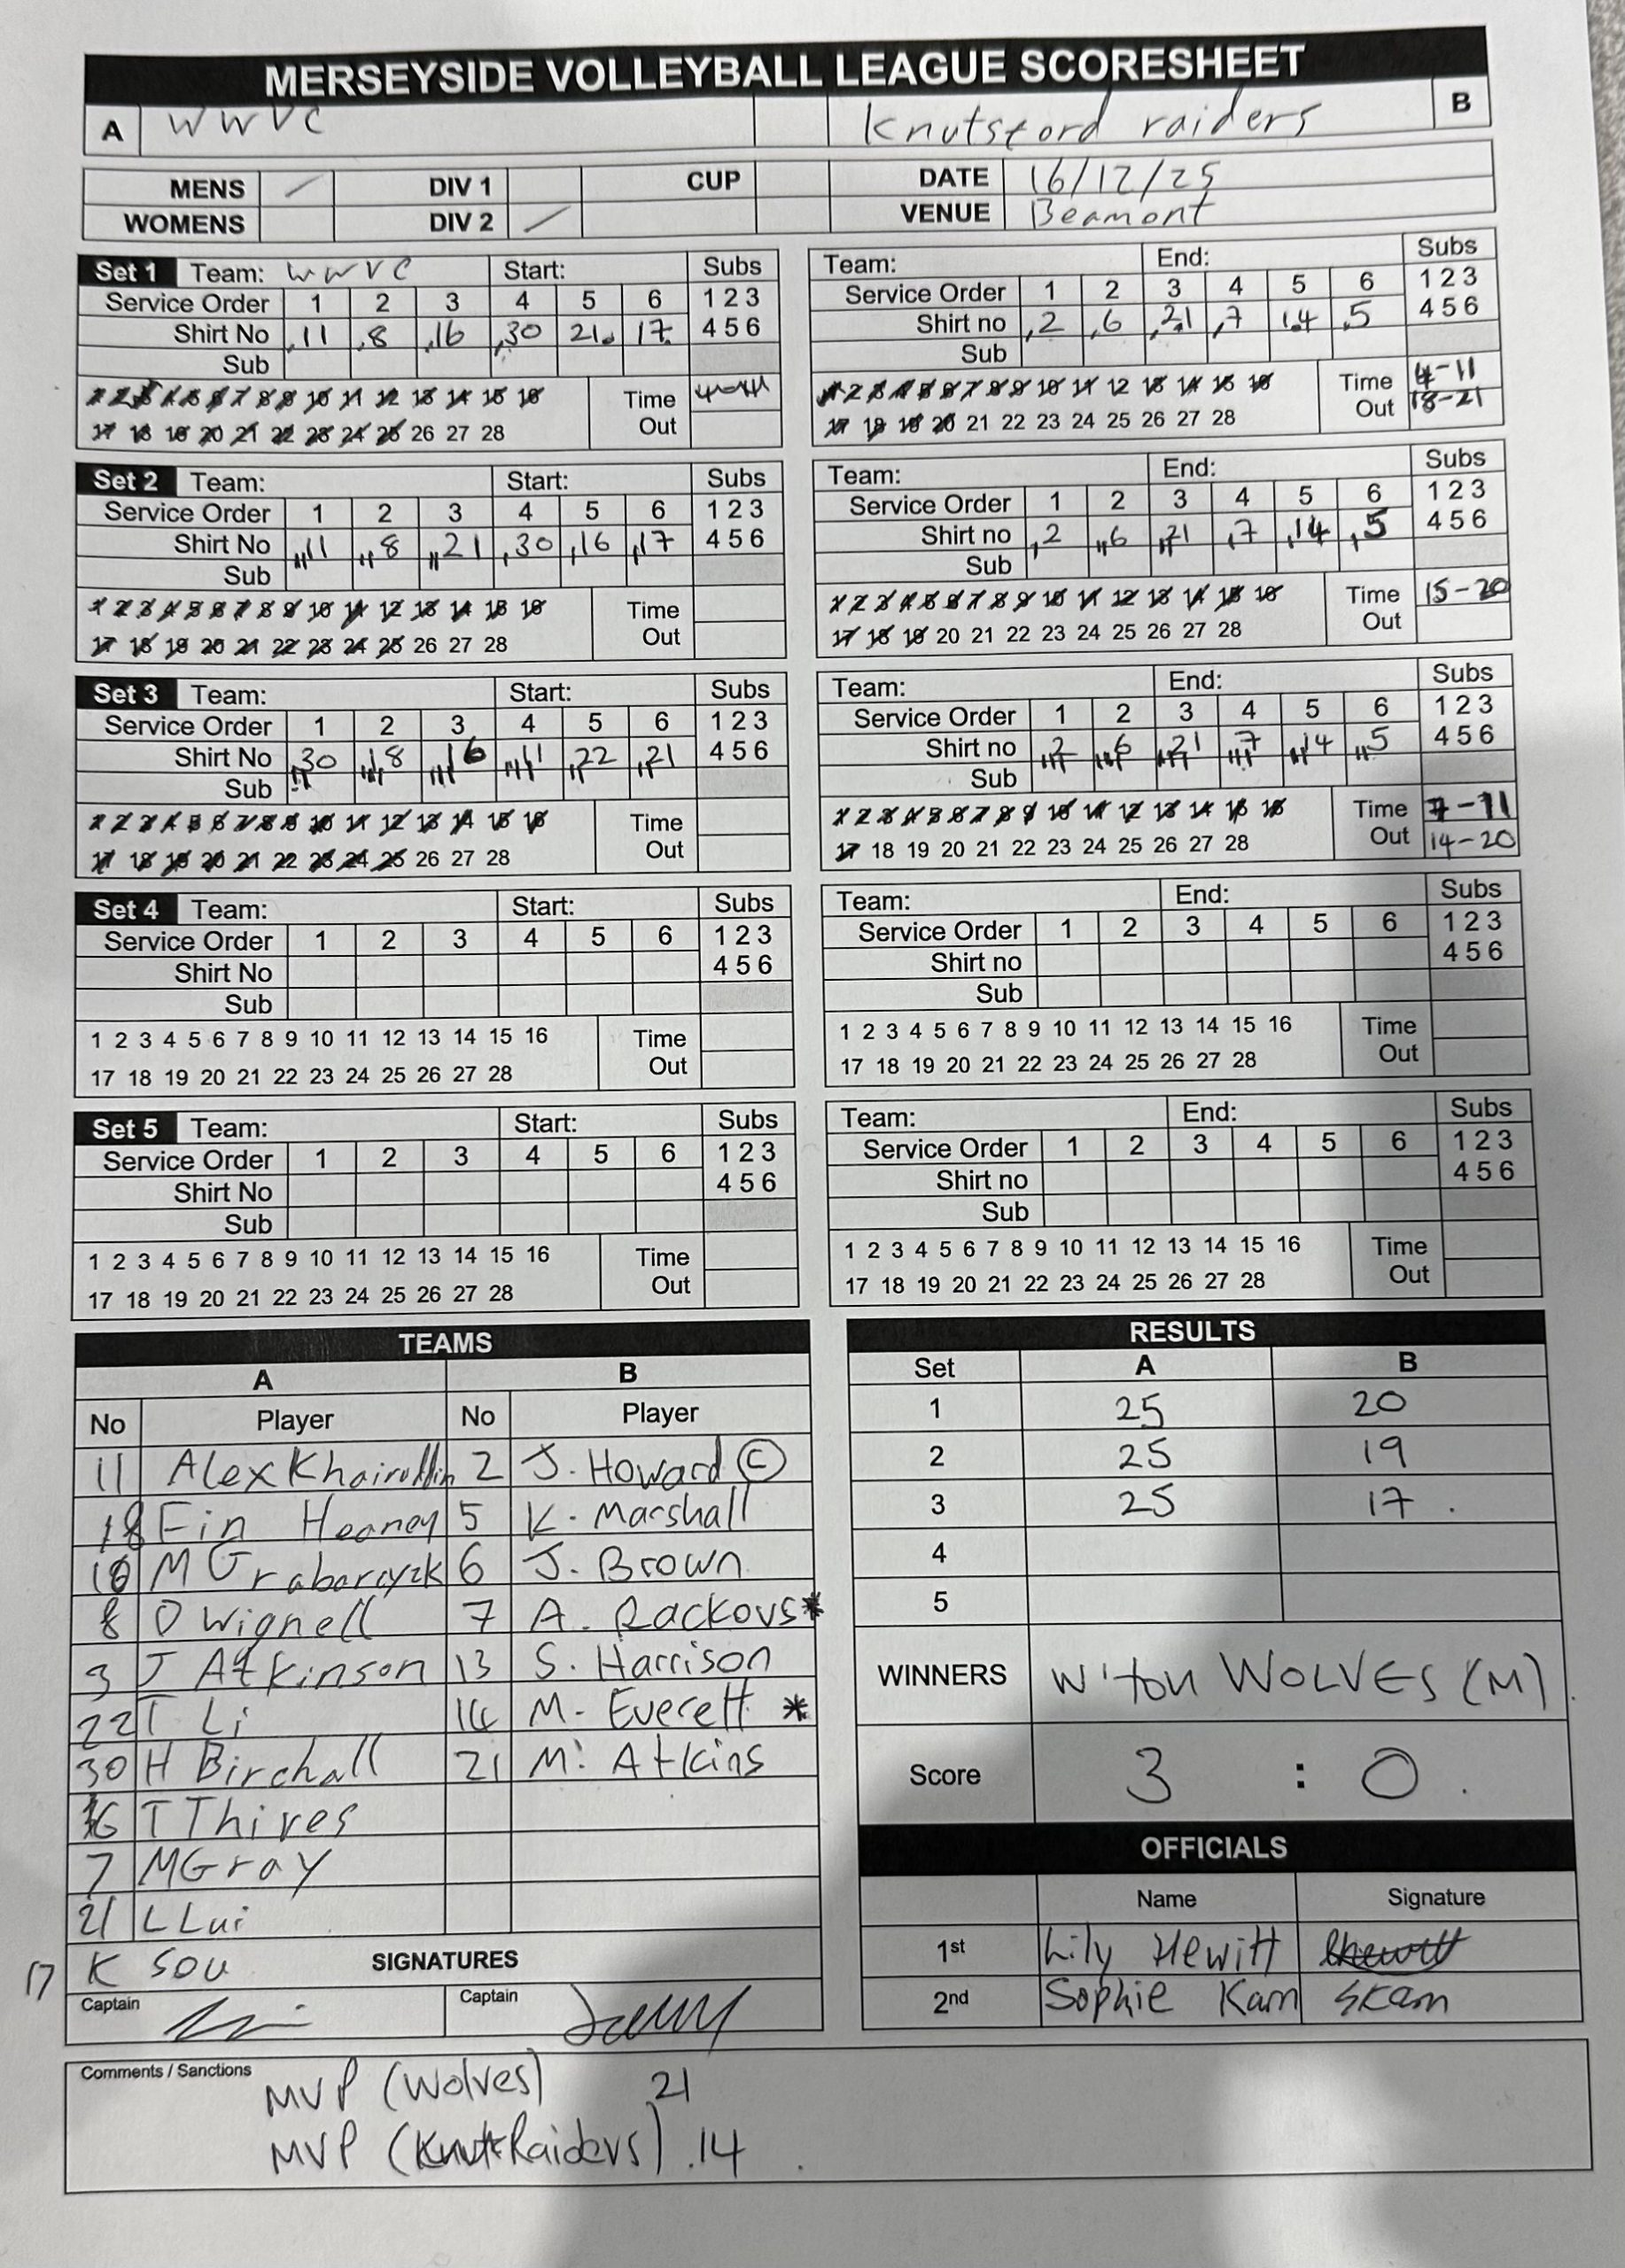 MERSEYSIDE VOLLEYBALL LEAGUE SCORESHEET
A WWVC Knutsford raiders B
MENS / DIV 1 CUP DATE 16/12/25
WOMENS DIV 2 / VENUE Beamont
Set 1 Team: WWVC Start: Subs Team: End: Subs
Service Order 1 2 3 4 5 6 1 2 3 Service Order 1 2 3 4 5 6 1 2 3
Shirt No 11 8 16 30 21 17 4 5 6 Shirt no 2 6 21 7 14 5 4 5 6
Sub Sub
1 2 3 4 5 6 7 8 9 10 11 12 13 14 15 16 Time 1 2 3 4 5 6 7 8 9 10 11 12 13 14 15 16 Time 4-11
17 18 19 20 21 22 23 24 25 26 27 28 Out 17 18 19 20 21 22 23 24 25 26 27 28 Out 18-21
Set 2 Team: Start: Subs Team: End: Subs
Service Order 1 2 3 4 5 6 1 2 3 Service Order 1 2 3 4 5 6 1 2 3
Shirt No 11 8 21 30 16 17 4 5 6 Shirt no 2 6 21 7 14 5 4 5 6
Sub Sub
1 2 3 4 5 6 7 8 9 10 11 12 13 14 15 16 Time 1 2 3 4 5 6 7 8 9 10 11 12 13 14 15 16 Time 15-20
17 18 19 20 21 22 23 24 25 26 27 28 Out 17 18 19 20 21 22 23 24 25 26 27 28 Out
Set 3 Team: Start: Subs Team: End: Subs
Service Order 1 2 3 4 5 6 1 2 3 Service Order 1 2 3 4 5 6 1 2 3
Shirt No 30 18 16 11 22 21 4 5 6 Shirt no 2 6 21 7 14 5 4 5 6
Sub Sub
1 2 3 4 5 6 7 8 9 10 11 12 13 14 15 16 Time 1 2 3 4 5 6 7 8 9 10 11 12 13 14 15 16 Time 7-11
17 18 19 20 21 22 23 24 25 26 27 28 Out 17 18 19 20 21 22 23 24 25 26 27 28 Out 14-20
Set 4 Team: Start: Subs Team: End: Subs
Service Order 1 2 3 4 5 6 1 2 3 Service Order 1 2 3 4 5 6 1 2 3
Shirt No 4 5 6 Shirt no 4 5 6
Sub Sub
1 2 3 4 5 6 7 8 9 10 11 12 13 14 15 16 Time 1 2 3 4 5 6 7 8 9 10 11 12 13 14 15 16 Time
17 18 19 20 21 22 23 24 25 26 27 28 Out 17 18 19 20 21 22 23 24 25 26 27 28 Out
Set 5 Team: Start: Subs Team: End: Subs
Service Order 1 2 3 4 5 6 1 2 3 Service Order 1 2 3 4 5 6 1 2 3
Shirt No 4 5 6 Shirt no 4 5 6
Sub Sub
1 2 3 4 5 6 7 8 9 10 11 12 13 14 15 16 Time 1 2 3 4 5 6 7 8 9 10 11 12 13 14 15 16 Time
17 18 19 20 21 22 23 24 25 26 27 28 Out 17 18 19 20 21 22 23 24 25 26 27 28 Out
TEAMS
A B
No Player No Player
11 Alex Khairuddin 2 J. Howard ©
18 Fin Heaney 5 K. Marshall
10 M Grabarczyk 6 J. Brown
8 O Wignell 7 A. Rackovs*
3 J Atkinson 13 S. Harrison
22 T Li 14 M. Everett *
30 H Birchall 21 M. Atkins
16 T Thires
7 M Gray
21 L Lui
17 K Sou SIGNATURES
Captain Captain
RESULTS
Set A B
1 25 20
2 25 19
3 25 17
4
5
WINNERS W'ton WOLVES (M)
Score 3 : 0
OFFICIALS
Name Signature
1st Lily Hewitt Lhewitt
2nd Sophie Kam SKam
Comments / Sanctions
MVP (Wolves) 21
MVP (Knut Raiders) 14